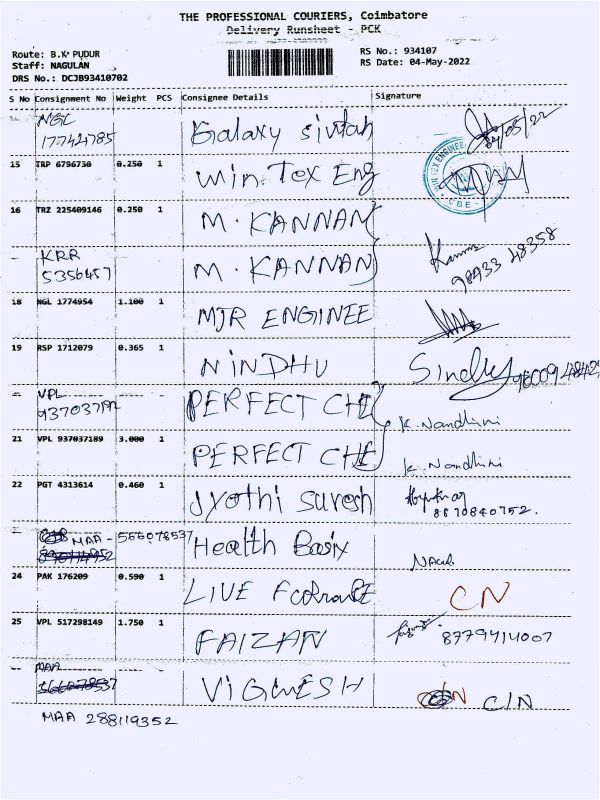 THE PROFESSIONAL COURIERS, Coimbatore
Delivery Runsheet - PCK
Route: B.K PUDUR
RS No.: 934107
Staff: NAGULAN
RS Date: 04-May-2022
DRS No.: DCJB93410702
S No Consignment No Weight PCS Consignee Details Signature
NGL
177421785 Galaxy
04/05/22
15 TRP 6796730 0.250 1 Win Tex Eng
WIN TEX ENGINEE
CBE
16 TRZ 225409146 0.250 1 M. KANNAN
KRR
5356457 M. KANNAN
98433 48358
18 NGL 1774954 1.100 1 MJR ENGINEE
19 RSP 1712079 0.365 1 NINDHU Sindhu
VPL
PERFECT CHE K. Nandhini
21 VPL 937037189 3.000 1 PERFECT CHE K. Nandhini
22 PGT 4313614 0.460 1 Jyothi Suresh
8870840752.
MAA - 566078537 Health Basix
24 PAK 176209 0.590 1 LIVE CN
25 VPL 517298149 1.750 1 FAIZAN 8779414007
MAA
566078537 VIGNESH C/N
MAA 288119352